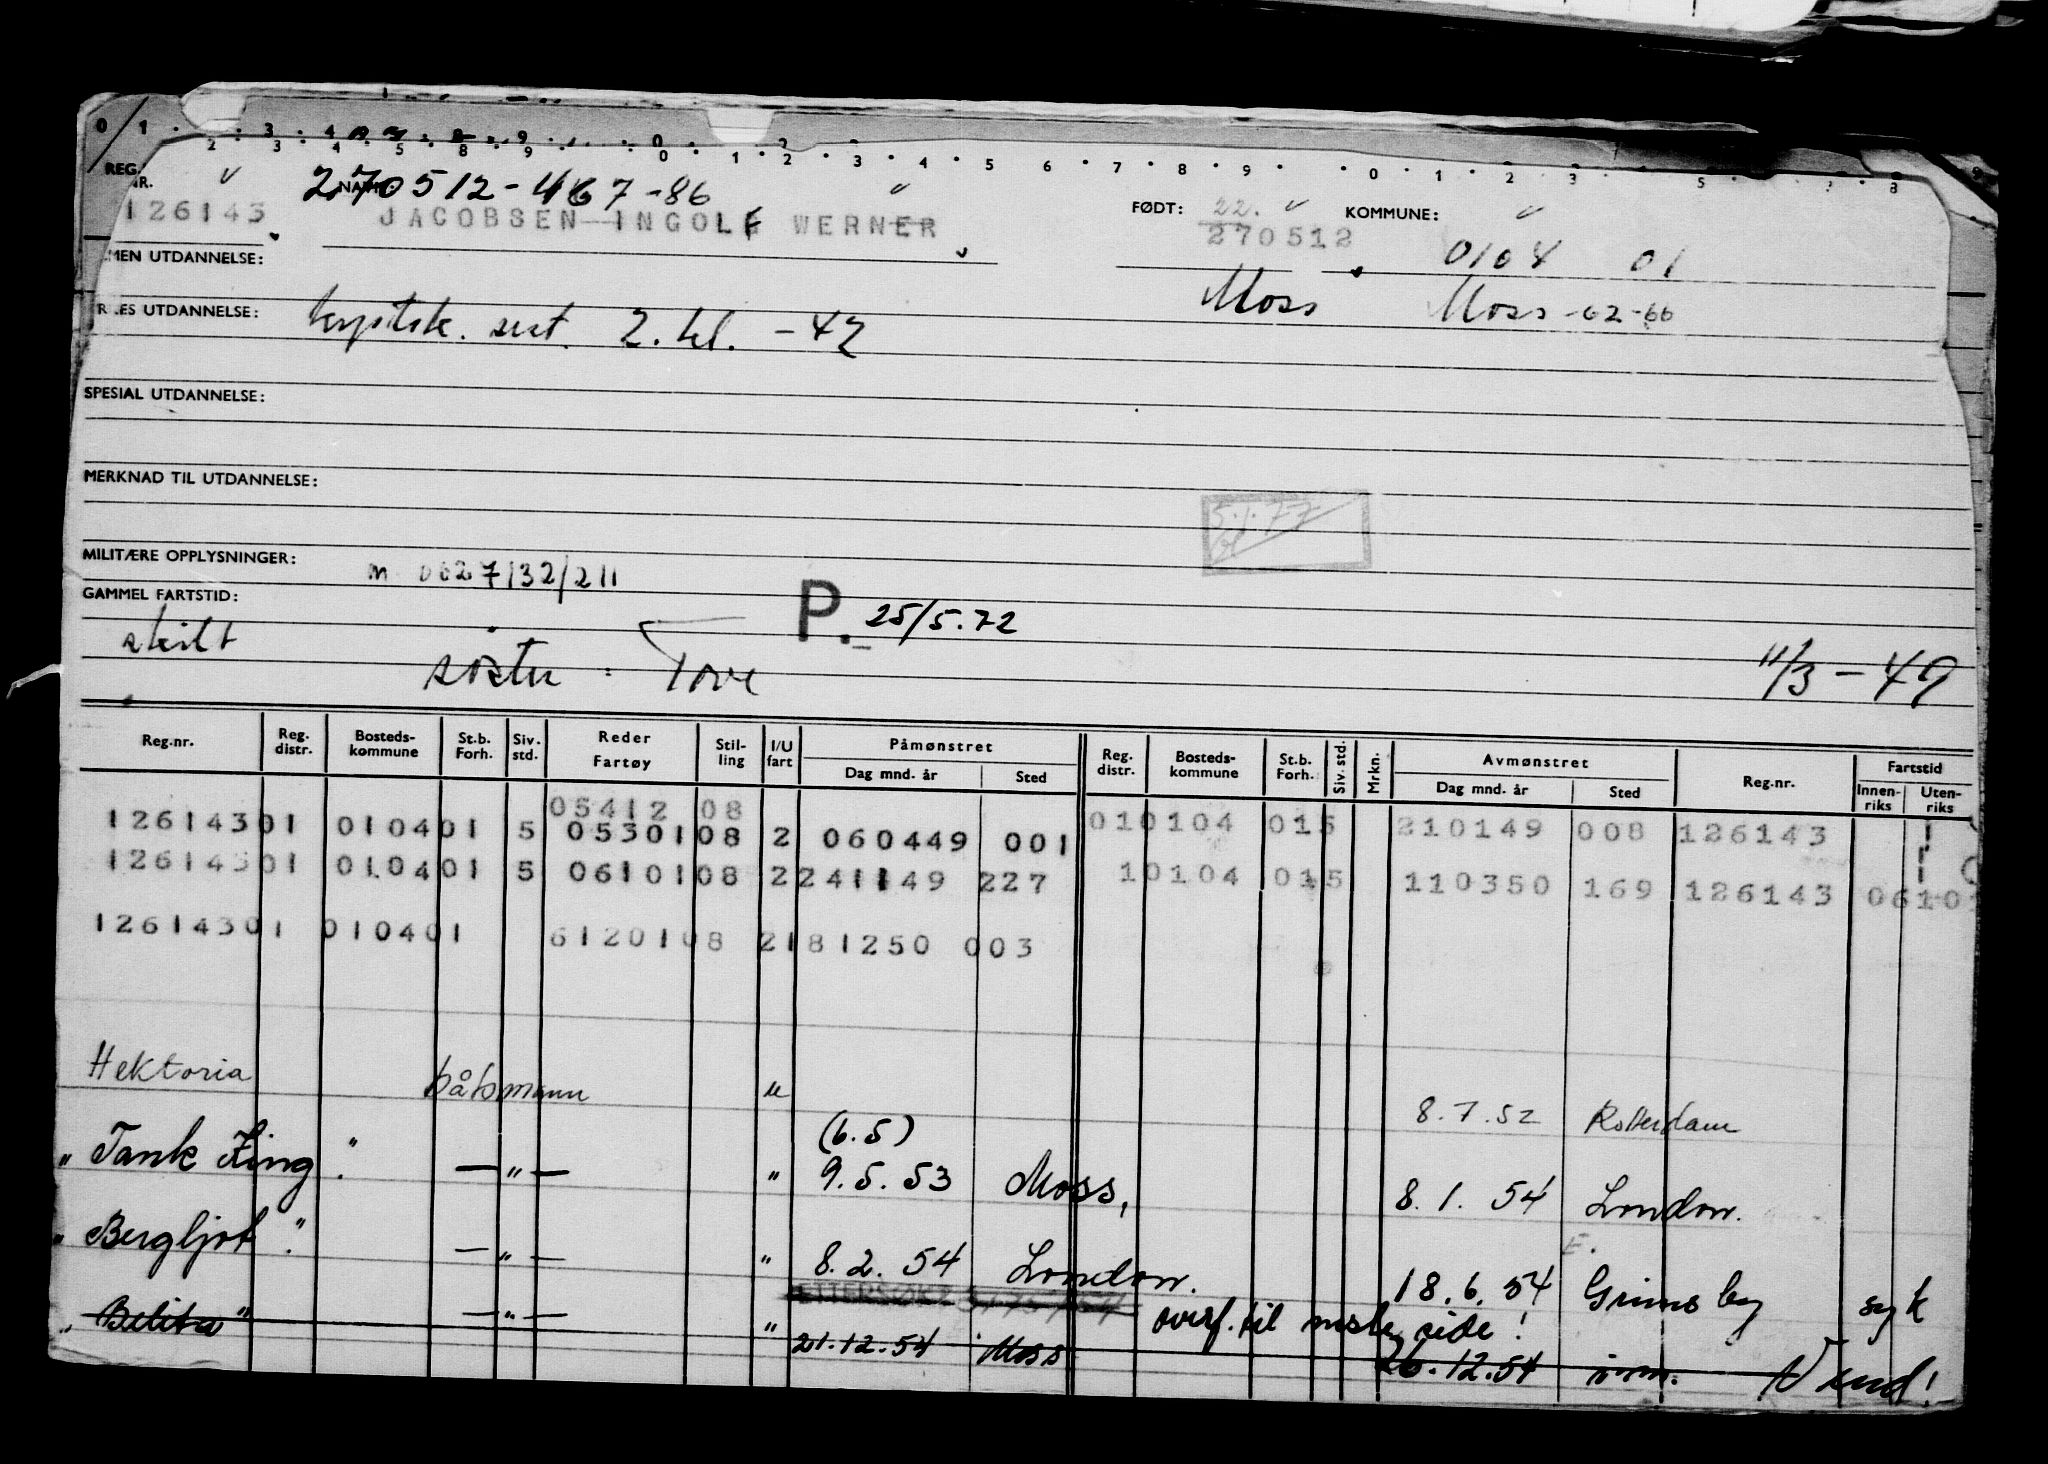 REG. NR. NAVN: 270512-467-86
126143 JACOBSEN INGOLF WERNER FØDT: 22. 270512 KOMMUNE: 0104 01
MEN UTDANNELSE: Moss Moss -62-66
ES UTDANNELSE: 2. kl. -42
SPESIAL UTDANNELSE:
MERKNAD TIL UTDANNELSE:
5.1.77
MILITÆRE OPPLYSNINGER: m 0627/32/211
GAMMEL FARTSTID: P. 25/5.72
skilt söster : Tove 11/3-49
Reg.nr. Reg. distr. Bosteds-kommune St.b. Forh. Siv. std. Reder Fartøy Stil-ling I/U fart Påmønstret Dag mnd. år Sted Reg. distr. Bosteds-kommune St.b. Forh. Siv. std. Mrkn. Avmønstret Dag mnd. år Sted Reg.nr. Fartstid Innen-riks Uten-riks
05412 08 010104 015 210149 008 126143
12614301 010401 5 0530108 2 060449 001
12614301 010401 5 0610108 2 241149 227 10104 015 110350 169 126143 06101
12614301 010401 6120108 2181250 003
Hektoria båtsmann " 8.7.52 Rotterdam
(6.5)
"Tank King". —"— " 9.5.53 Moss, 8.1.54 London.
"Bergljot". —"— " 8.2.54 London. 18.6.54 Grimsby syk
ETTERSØKT overf. til neste side!
"Belita" —"— " 21.12.54 Moss 26.12.54 Vend!